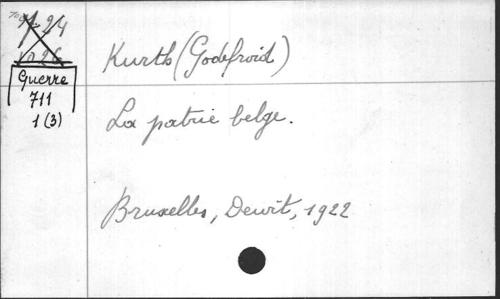 Guerre
711
1 (3)
Kurth (Godefroid)
La patrie belge.
Bruxelles, Dewit, 1922